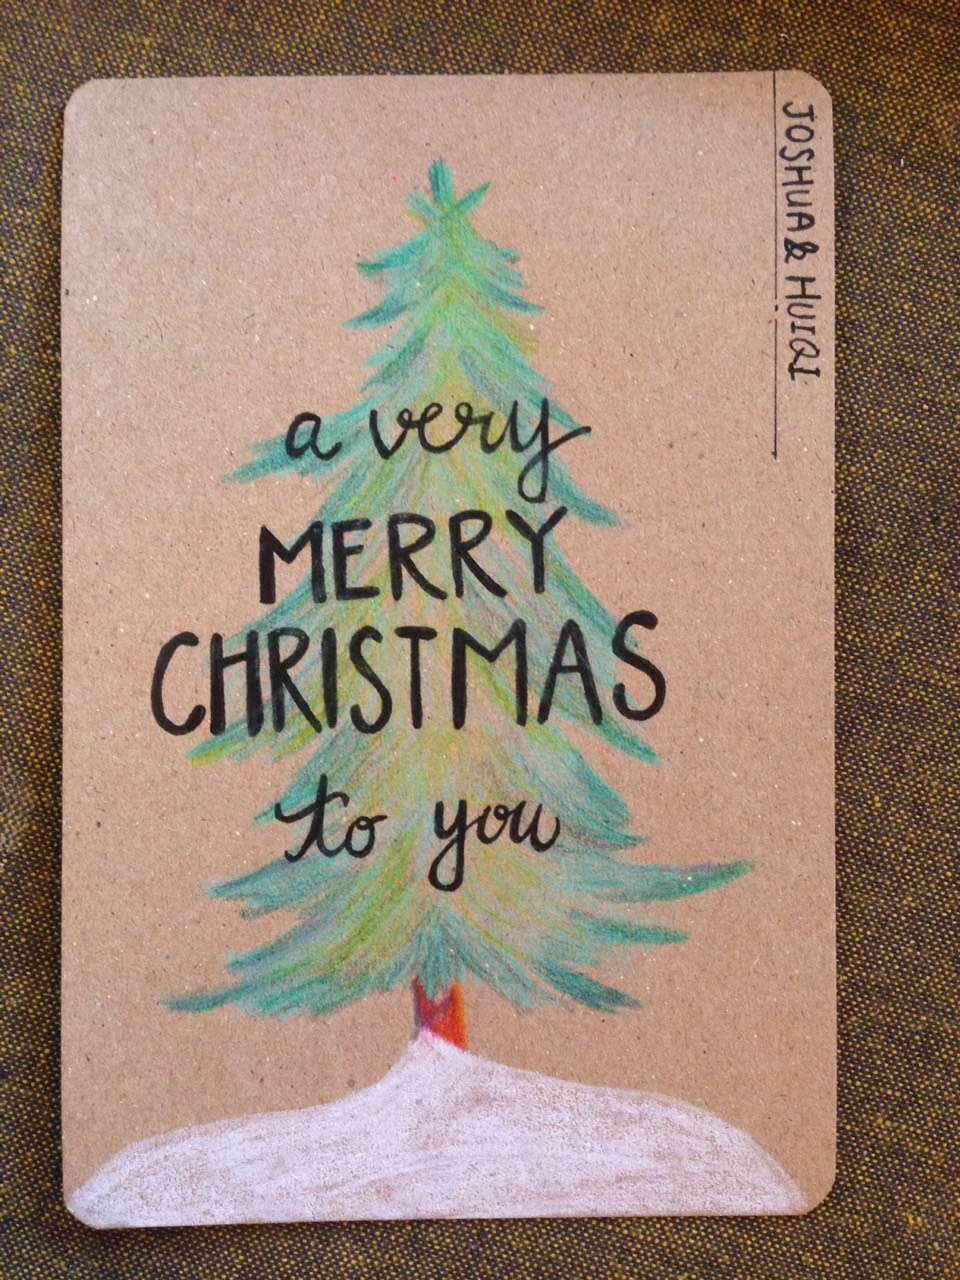 JOSHUA & HUIQI
a very
MERRY
CHRISTMAS
to you